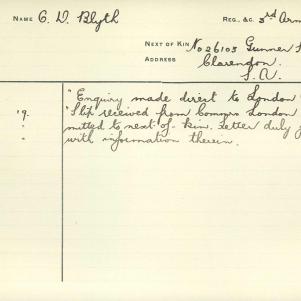 NAME C. D. Blyth REG. &C. 3rd Arm
NEXT OF KIN No 26103 Gunner
ADDRESS Clarendon.
S.A.
"Enquiry made direct to London
19. "Slip received from Commrs London
" mitted to next-of-kin. Letter duly
" with information therein.